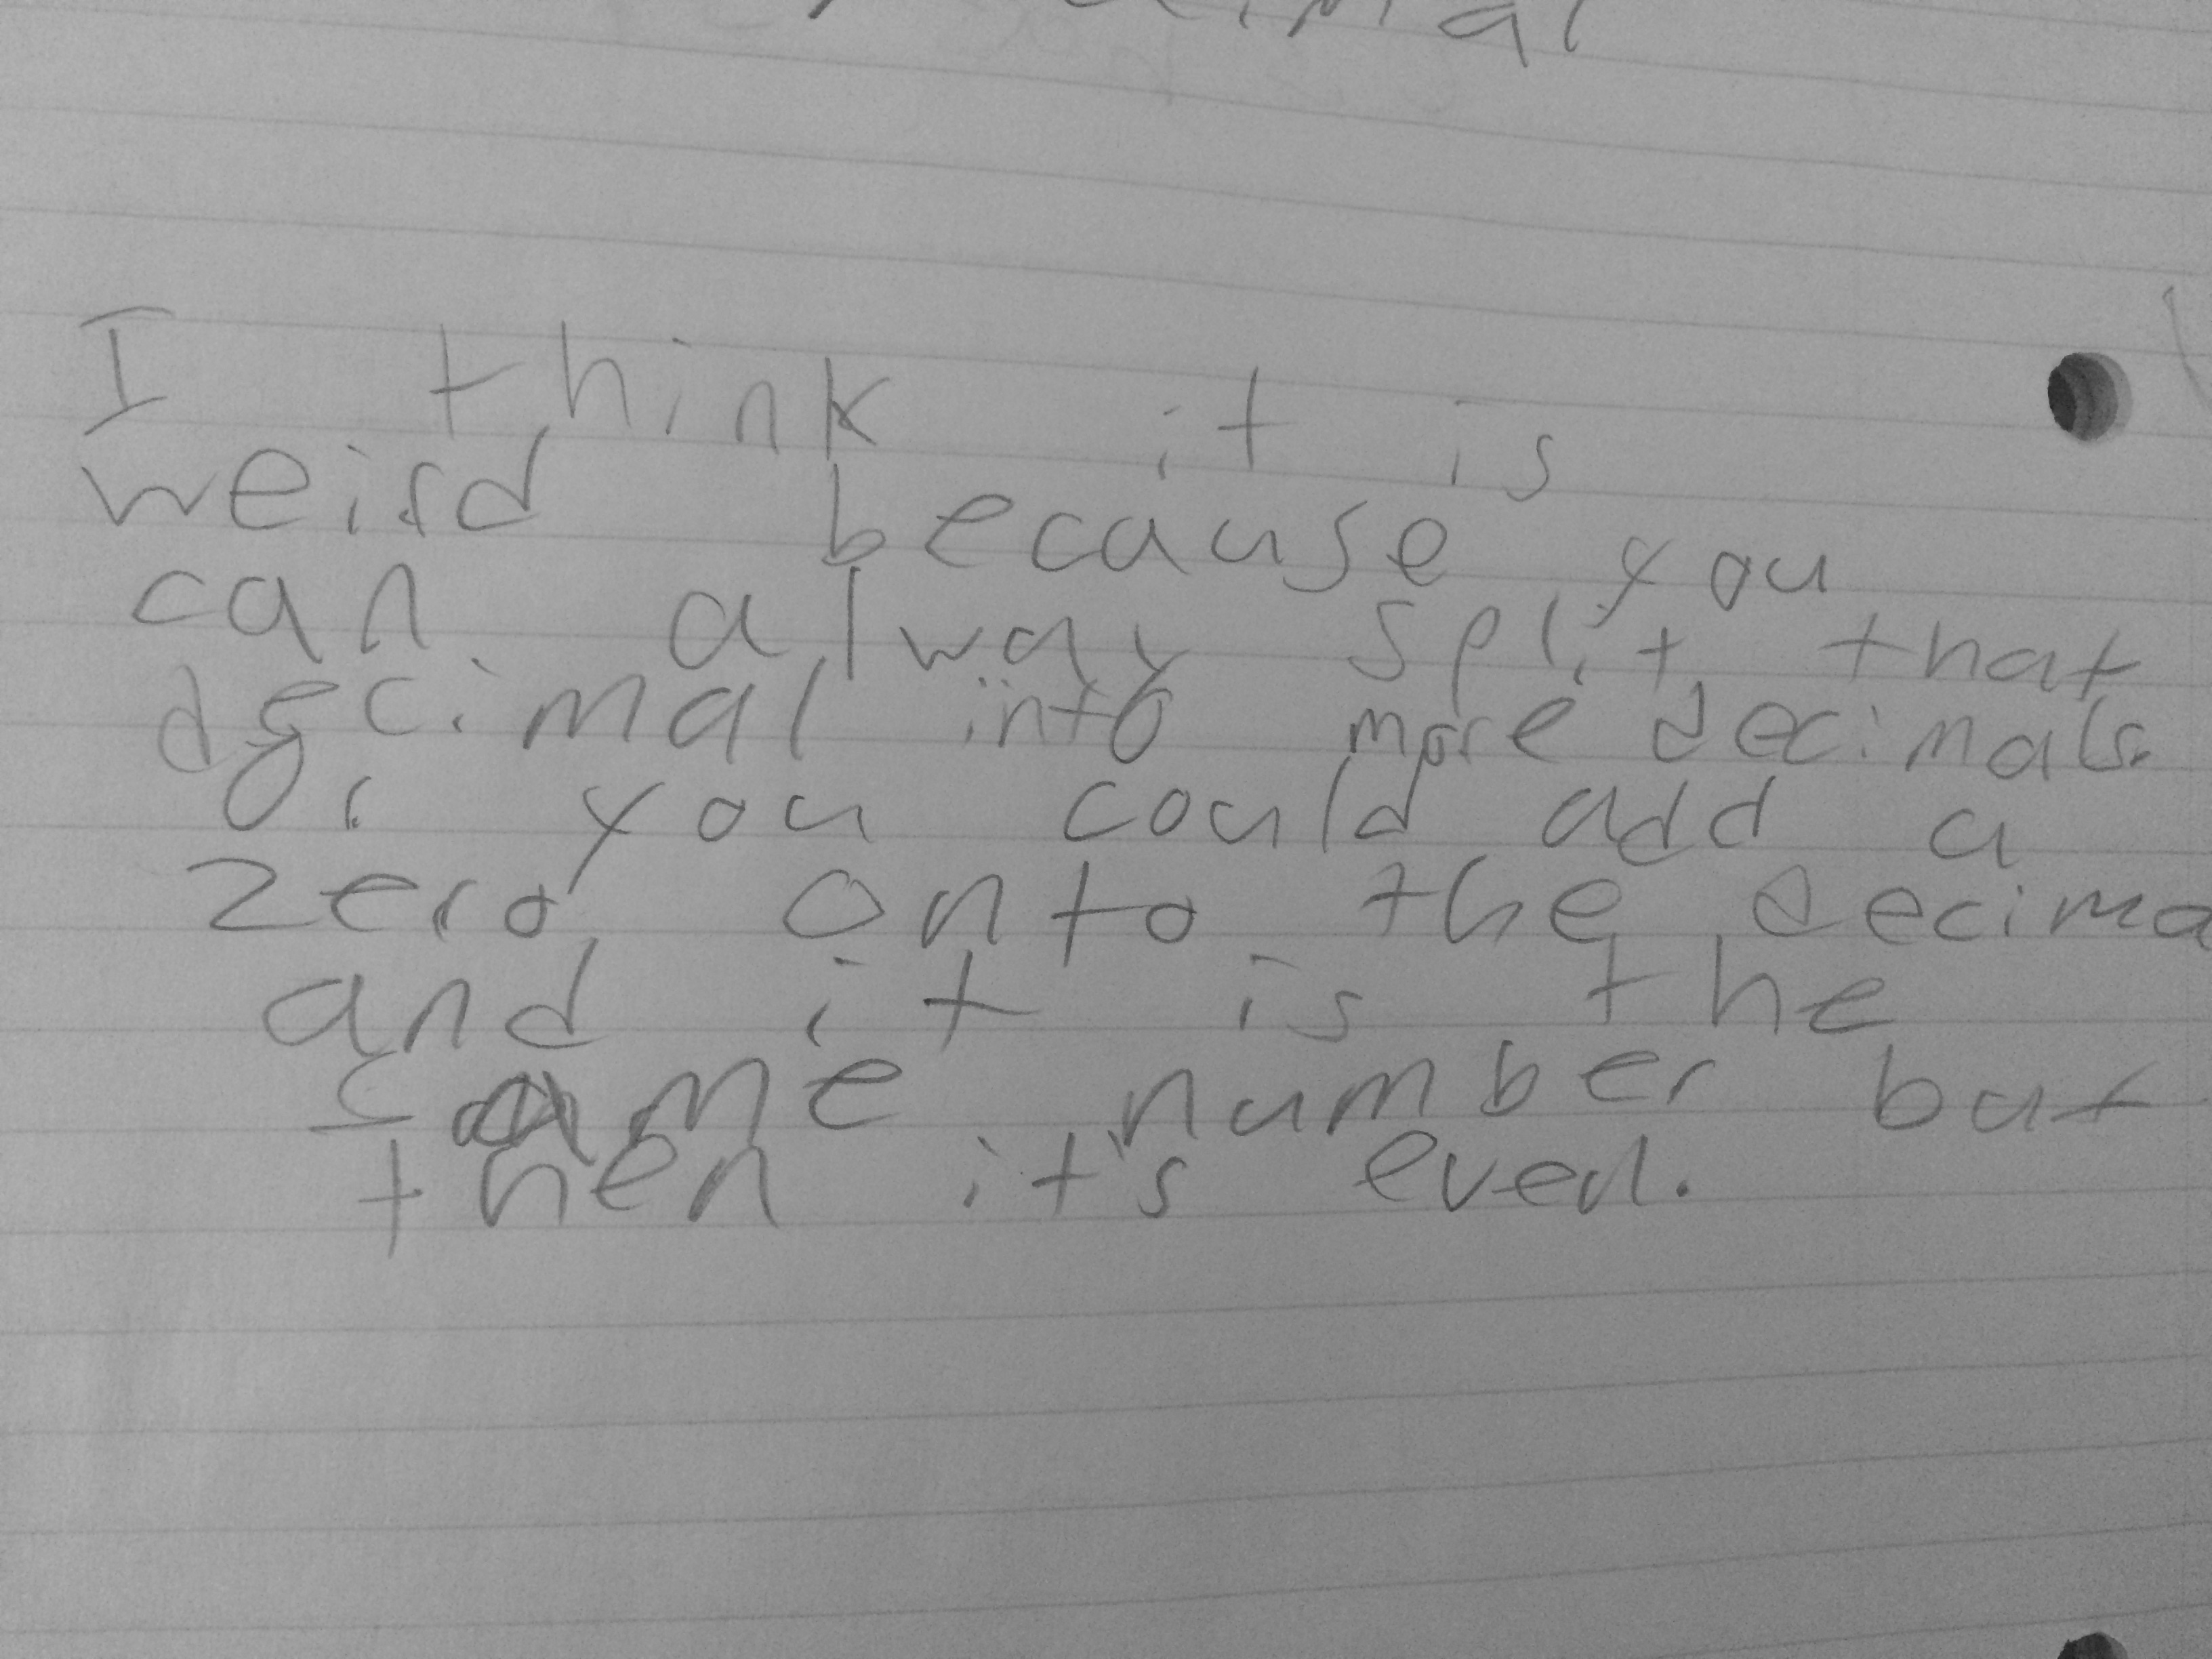 I think it is
weird because you
can alway split that
decimal into more decimals.
Or you could add a
zero onto the decima
and it is the
same number but
then it's even.